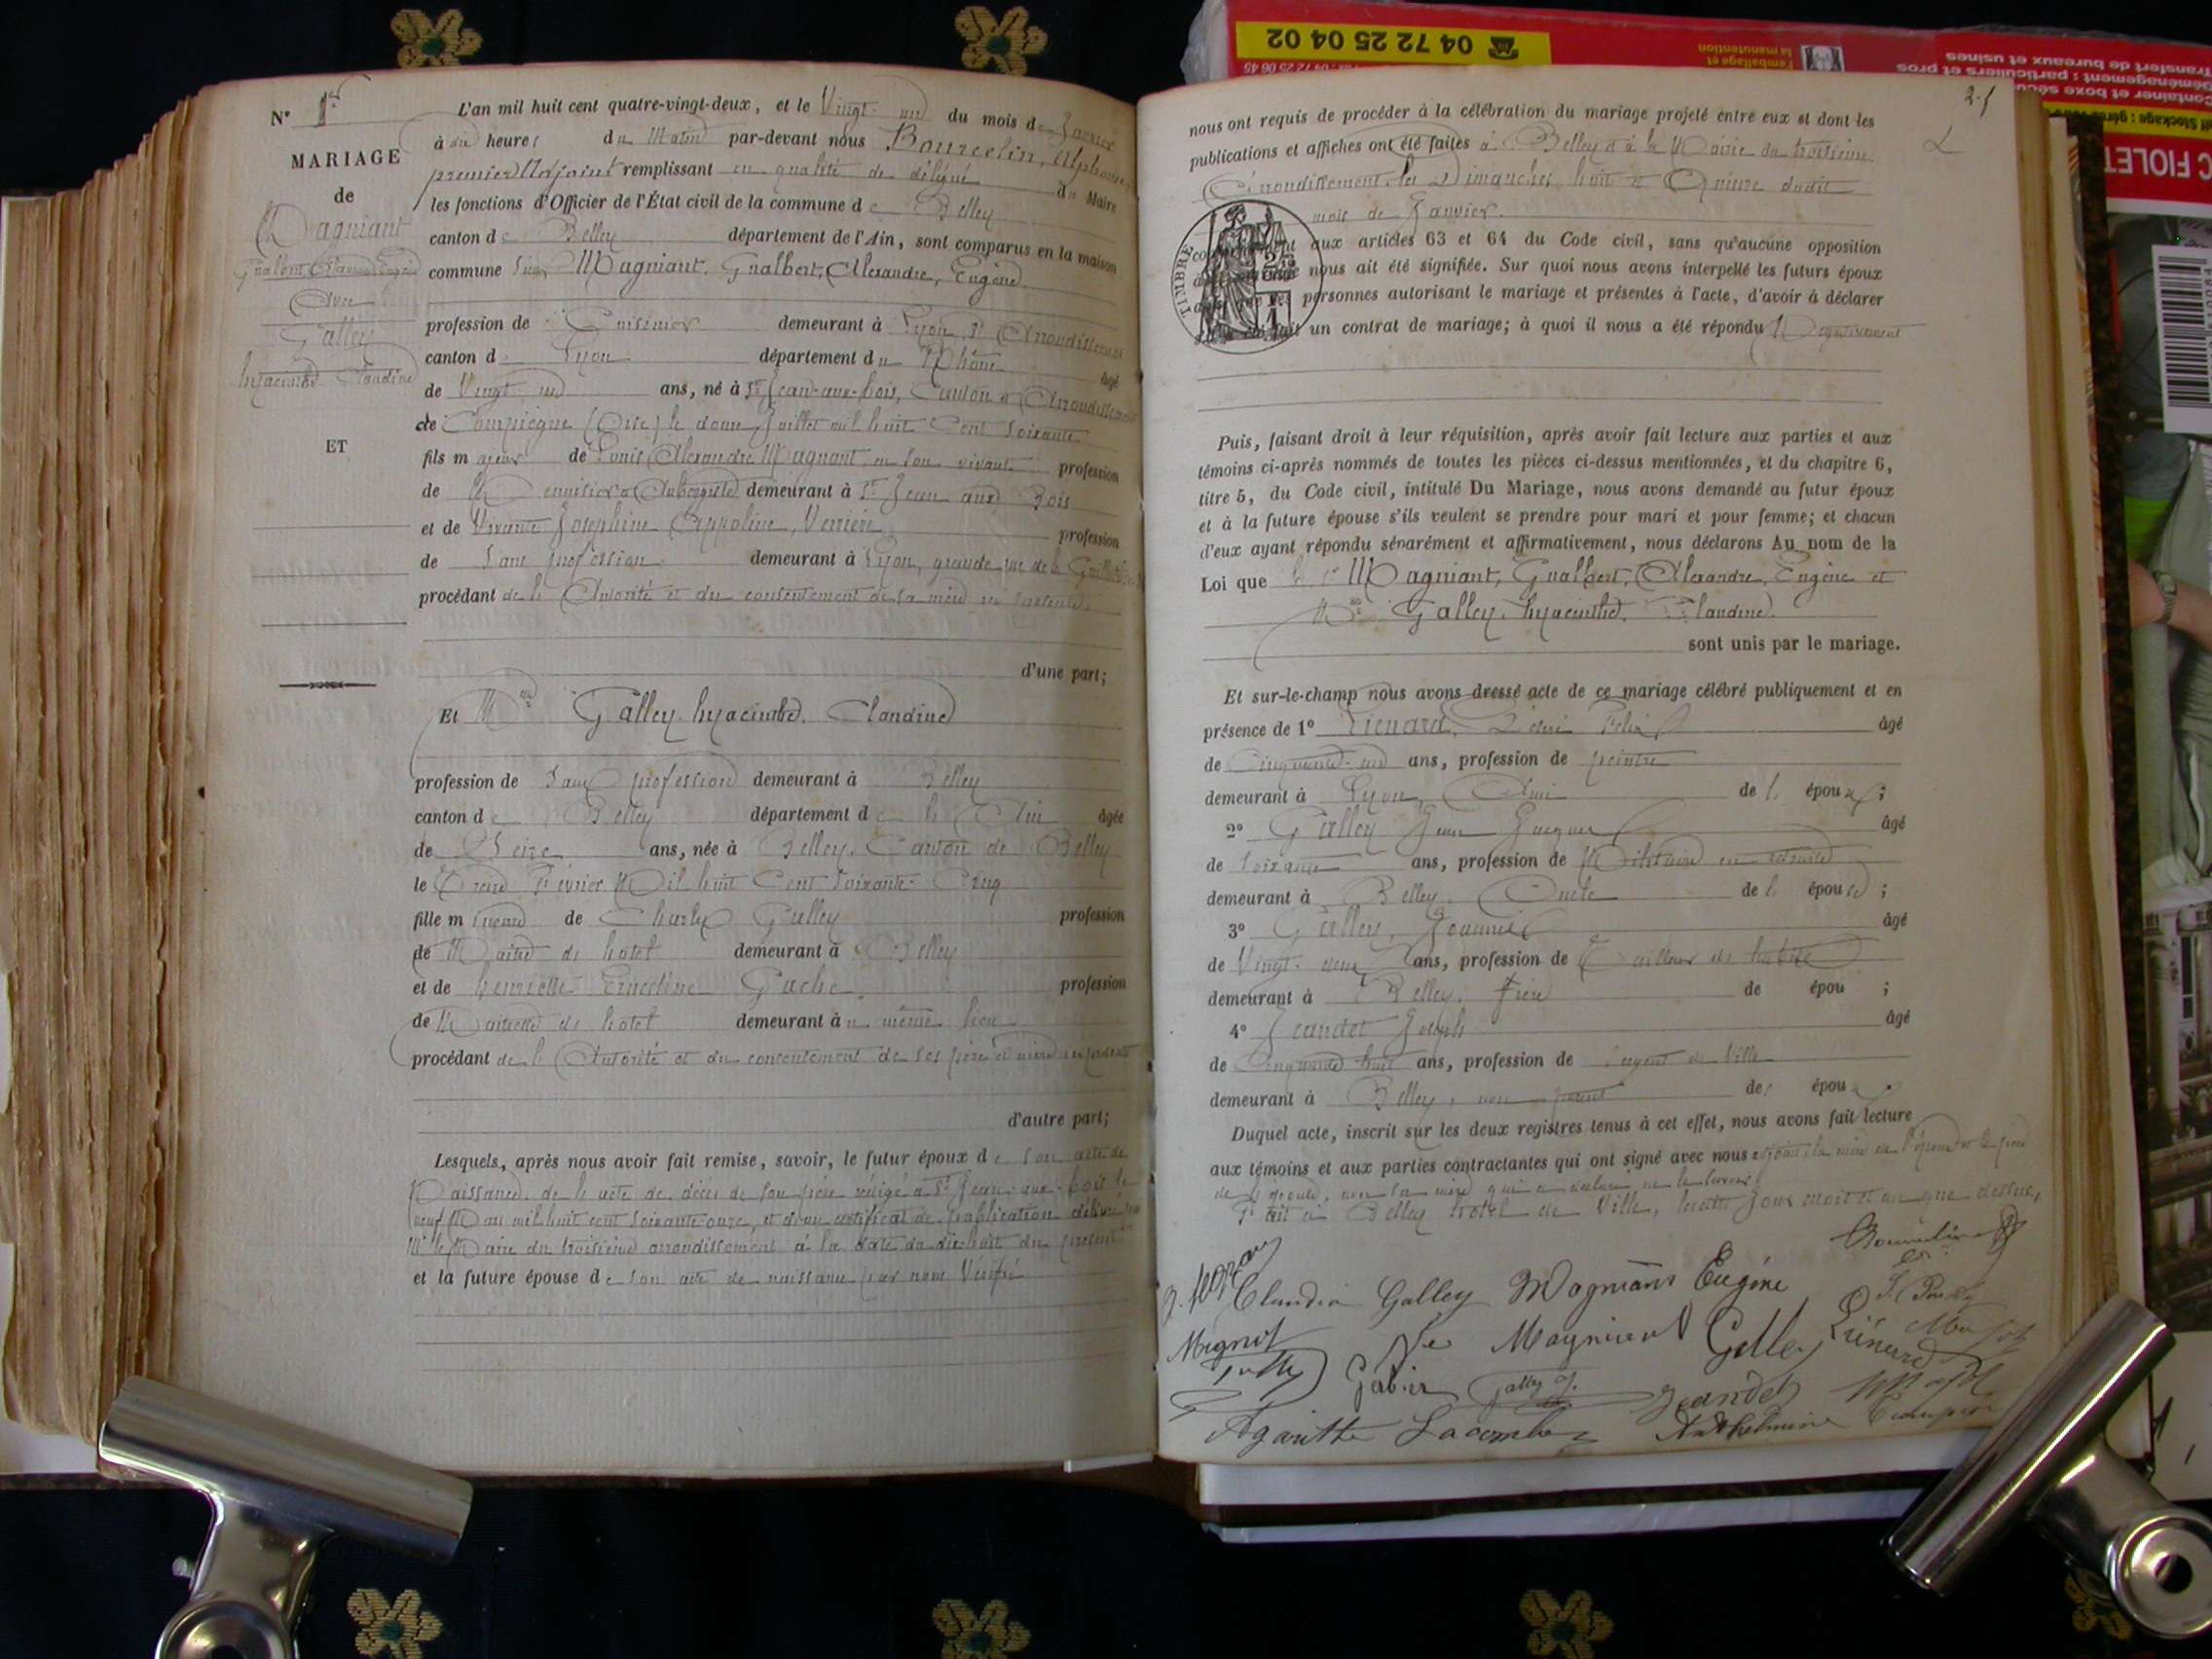 N° 1er
MARIAGE
de
Magniant
Gualbert Alexandre Eugène
Avec
Galley
hyacinthe Claudine
ET
L'an mil huit cent quatre-vingt-deux, et le Vingt-un du mois de Janvier
à dix heures du Matin par-devant nous Bourcelin, Alphonse
premier Adjoint remplissant en qualité de délégué du Maire
les fonctions d'Officier de l'État civil de la commune de Belley
canton de Belley département de l'Ain, sont comparus en la maison
commune Sieur Magniant, Gualbert, Alexandre, Eugène
profession de Cuisinier demeurant à Lyon, 3e Arrondissement
canton d Lyon département du Rhône âgé
de Vingt-un ans, né à St Jean-aux-bois, Canton et Arrondissement
de Compiègne (Oise) le douze Juillet mil huit Cent Soixante
fils majeur de Louis Alexandre Magniant en son vivant profession
de Menuisier et Aubergiste demeurant à St Jean aux Bois
et de Vivante Joséphine Appoline Verrière profession
de Sans profession demeurant à Lyon, grande rue de la Guillotière
procédant de l'Autorité et du consentement de sa mère ici présente
d'une part;
Et Mlle Galley hyacinthe Claudine
profession de Sans profession demeurant à Belley
canton de Belley département de l'Ain âgée
de Seize ans, née à Belley, Canton de Belley
le Février Mil huit Cent Soixante-Cinq
fille mineure de Charles Galley profession
de Maître de hotel demeurant à Belley
et de henriette Ernestine Gache profession
de Maitresse de hotel demeurant à même lieu
procédant de l'Autorité et du consentement de ses père et mère ici présents
d'autre part;
Lesquels, après nous avoir fait remise, savoir, le futur époux de son acte de
Naissance, de l'acte de décès de son père rédigé à St Jean-aux-bois le
neuf Mai mil huit cent soixante-onze, et d'un certificat de publication délivré par
Mr le Maire du troisième arrondissement à la date du dix-huit du présent
et la future épouse de son acte de naissance par nous Vérifié
2.f
nous ont requis de procéder à la célébration du mariage projeté entre eux et dont les
publications et affiches ont été faites à Belley et à la Mairie du troisième
Arrondissement, les Dimanches huit et Quinze dudit
mois de Janvier.
TIMBRE
aux articles 63 et 64 du Code civil, sans qu'aucune opposition
nous ait été signifiée. Sur quoi nous avons interpellé les futurs époux
personnes autorisant le mariage et présentes à l'acte, d'avoir à déclarer
un contrat de mariage; à quoi il nous a été répondu Négativement
Puis, faisant droit à leur réquisition, après avoir fait lecture aux parties et aux
témoins ci-après nommés de toutes les pièces ci-dessus mentionnées, et du chapitre 6,
titre 5, du Code civil, intitulé Du Mariage, nous avons demandé au futur époux
et à la future épouse s'ils veulent se prendre pour mari et pour femme; et chacun
d'eux ayant répondu séparément et affirmativement, nous déclarons Au nom de la
Loi que le Sr Magniant, Gualbert, Alexandre, Eugène et
Mlle Galley, hyacinthe, Claudine
sont unis par le mariage.
Et sur-le-champ nous avons dressé acte de ce mariage célébré publiquement et en
présence de 1° Lienard, Felix âgé
de Cinquante-un ans, profession de peintre
demeurant à Lyon, Ami de l' époux;
2° Galley Jean Jacques âgé
de Soixante ans, profession de Militaire en retraite
demeurant à Belley, Oncle de l' épouse;
3° Galley, Joannie âgé
de Vingt-deux ans, profession de Tailleur de habits
demeurant à Belley, de épou ;
4° Jeandet Joseph âgé
de Cinquante huit ans, profession de Sergent de Ville
demeurant à Belley, non parent des époux
Duquel acte, inscrit sur les deux registres tenus à cet effet, nous avons fait lecture
aux témoins et aux parties contractantes qui ont signé avec nous la mère de l'époux et le père
de l'épouse, non sa mère qui a déclaré ne le savoir
Fait à Belley hotel de Ville, les dits Jour mois et an que dessus,
Claudia Galley Magniant Eugène
Mignot Ve Magniant Galley Liénard
Gerbier Galley J. Jeandet
Agarithe Lacombe Anthelmine
04 72 25 04 02
l'emballage et
la manutention
Déménagement : particuliers et pros
Transfert de bureaux et usines
C FIOLET